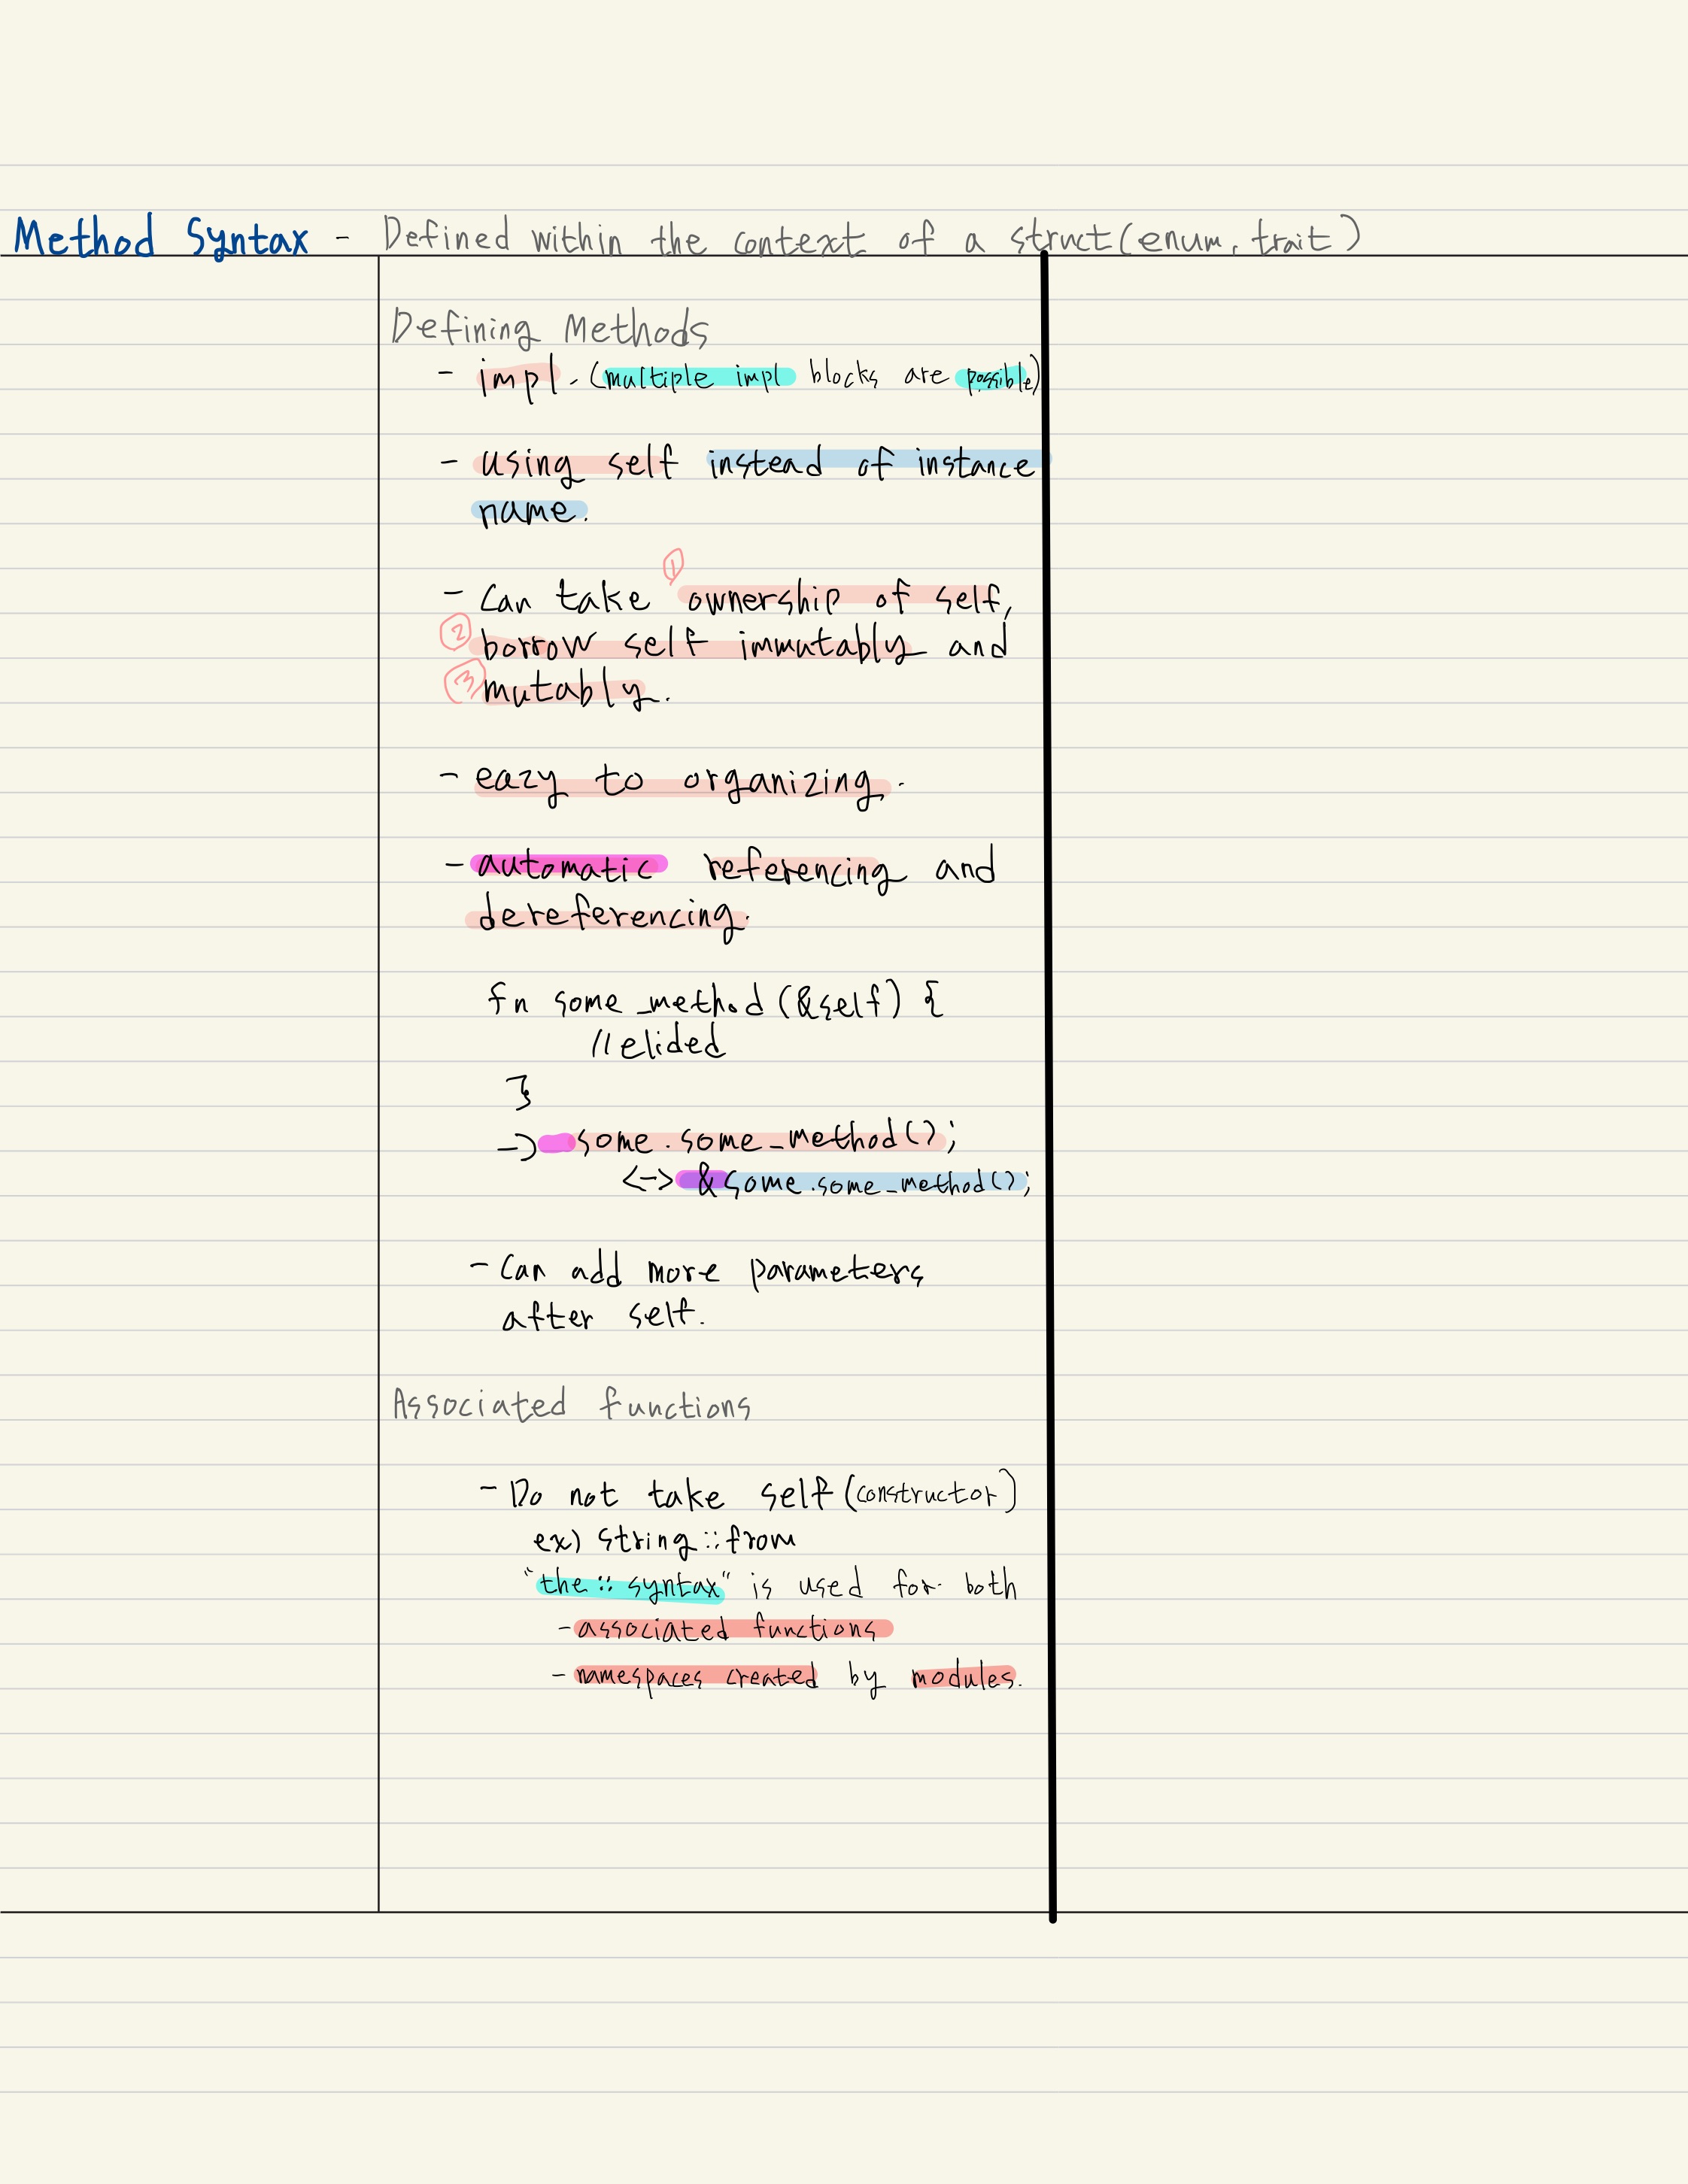 Method Syntax - Defined within the context of a struct(enum, trait)
Defining Methods
- impl. (multiple impl blocks are possible)
- using self instead of instance
name.
①
- Can take ownership of self,
② borrow self immutably and
③ mutably.
- eazy to organizing.
- automatic referencing and
dereferencing.
fn some_method(&self) {
//elided
}
-> some.some_method();
<-> &some.some_method();
- Can add more parameters
after self.
Associated functions
- Do not take self (constructor)
ex) string::from
"the :: syntax" is used for both
- associated functions
- namespaces created by modules.